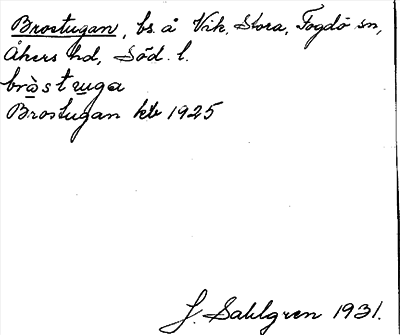 Brostugan, bs. å Vik, Stora, Fogdö sn,
Åkers hd, Söd. l.
bròstuga
Brostugan kb 1925
J. Sahlgren 1931.